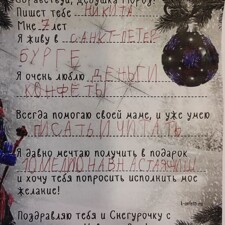 Здравствуй, Дедушка Мороз!
Пишет тебе НИКИТА
Мне 7 лет
Я живу в САНКТ-ПЕТЕР
БУРГЕ
Я очень люблю ДЕНЬГИ
КОНФЕТЫ
Всегда помогаю своей маме, и уже умею
ПИСАТЬ И ЧИТАТЬ
Я давно мечтаю получить в подарок
НАСТАЯЩИЙ
и хочу тебя попросить исполнить мое
желание!
Поздравляю тебя и Снегурочку с